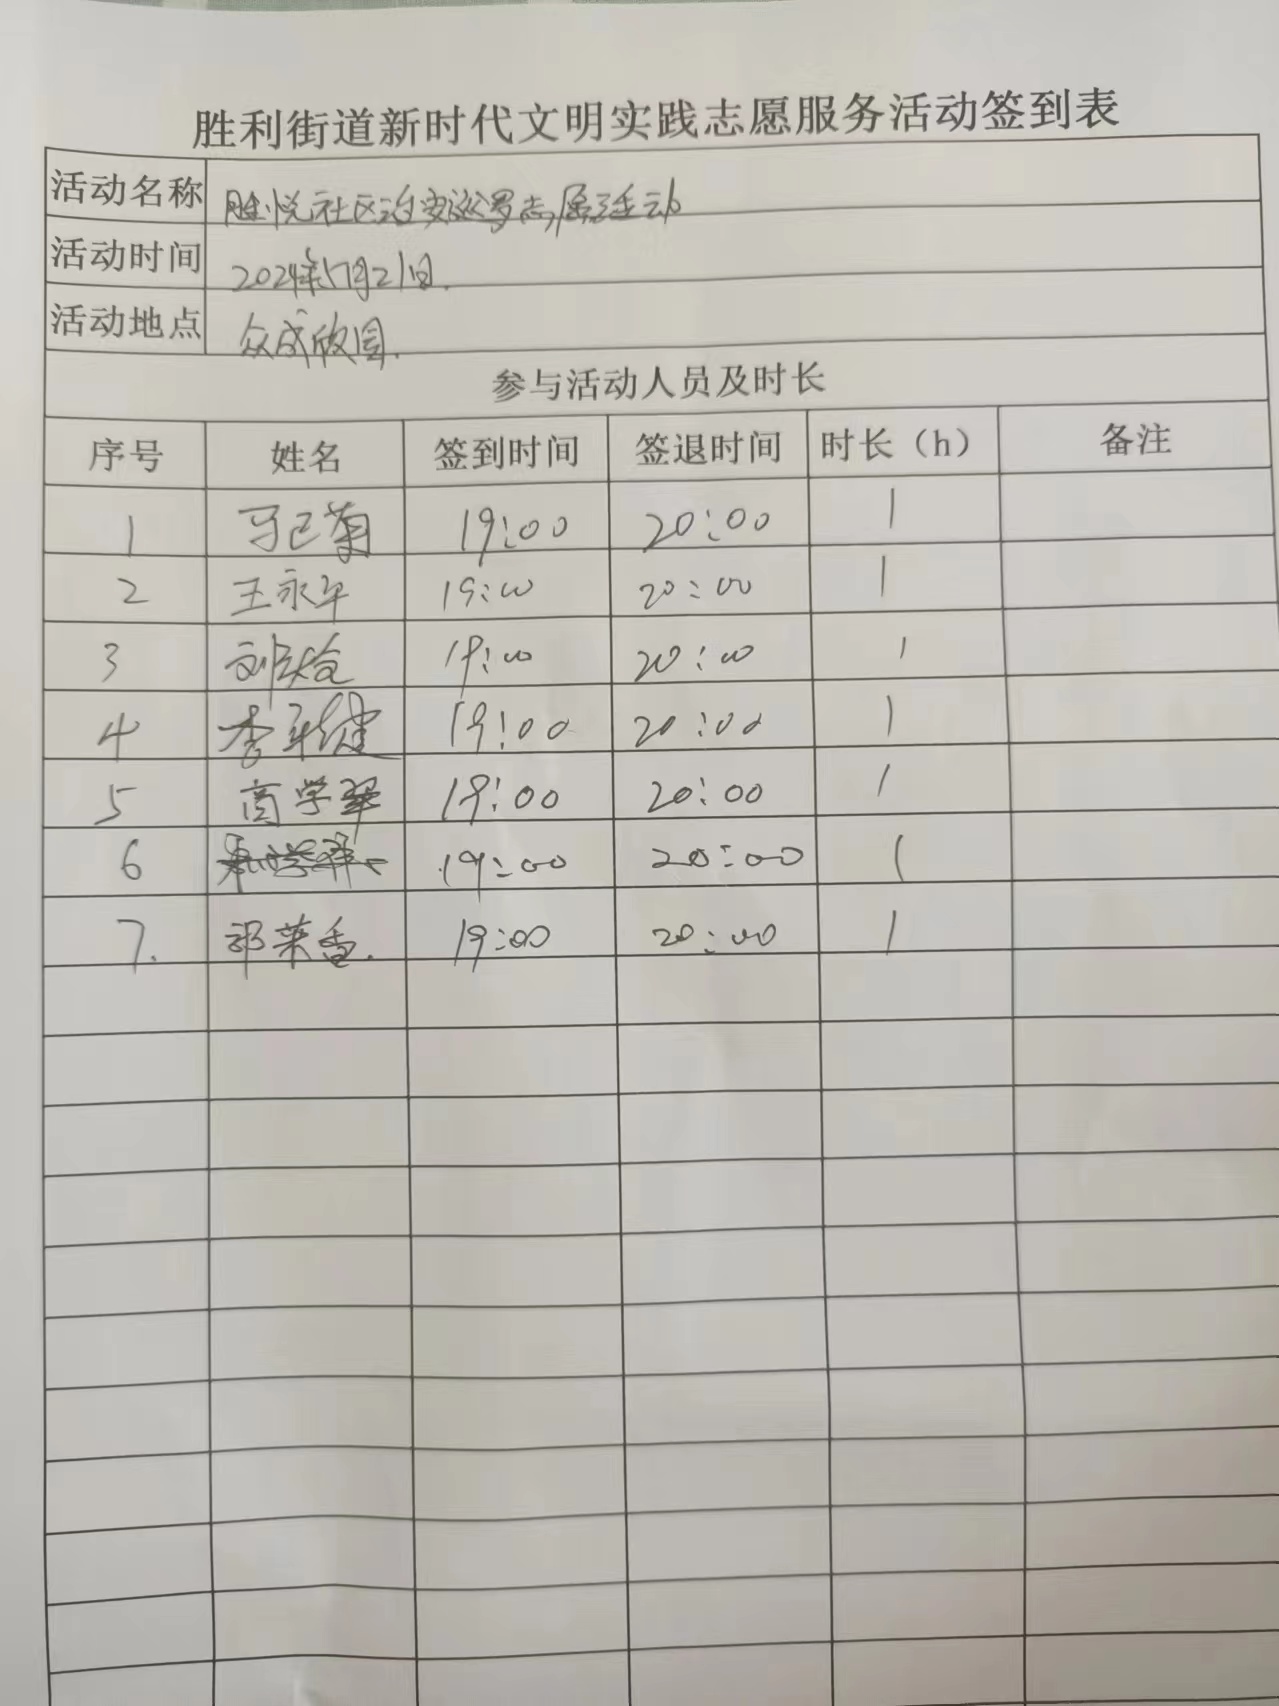 胜利街道新时代文明实践志愿服务活动签到表
活动名称 胜悦社区治安巡罗志愿活动
活动时间 2024年7月21日.
活动地点 众成欣园.
参与活动人员及时长
序号 姓名 签到时间 签退时间 时长（h） 备注
1 马己菊 19:00 20:00 1
2 王永军 19:00 20:00 1
3 刘 19:00 20:00 1
4 李 健 19:00 20:00 1
5 商学翠 19:00 20:00 1
6 19:00 20:00 1
7. 祁荣香. 19:00 20:00 1